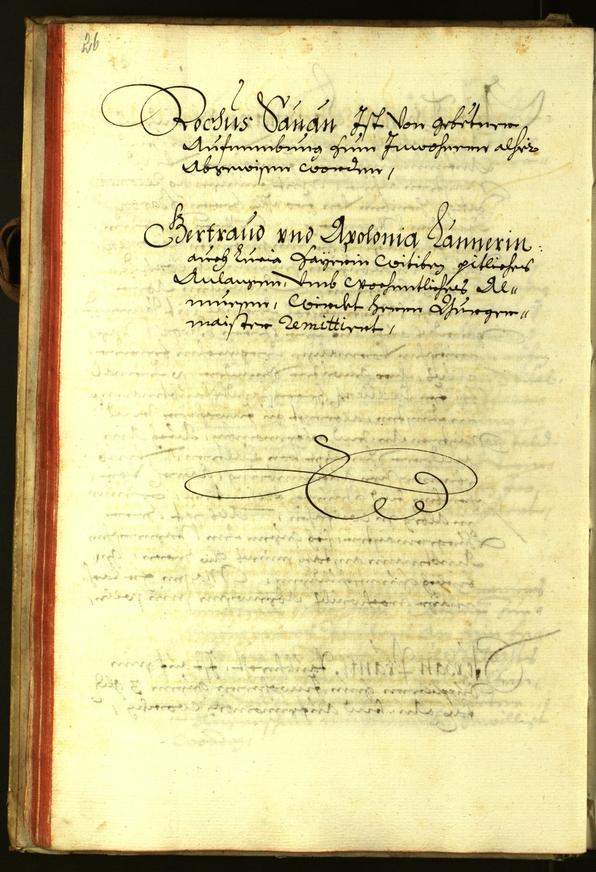 26
Rochus Sauan Ist von gebettner
Aufnembung zum Inwohner alhie
Abgewisen worden,
Gertraud vnd Apolonia Lannerin
auch Lucia witiben pitliches
Anlangen, vmb wochentliches Al„
muesen, wirdet herrn Burger„
maister Remittiert,